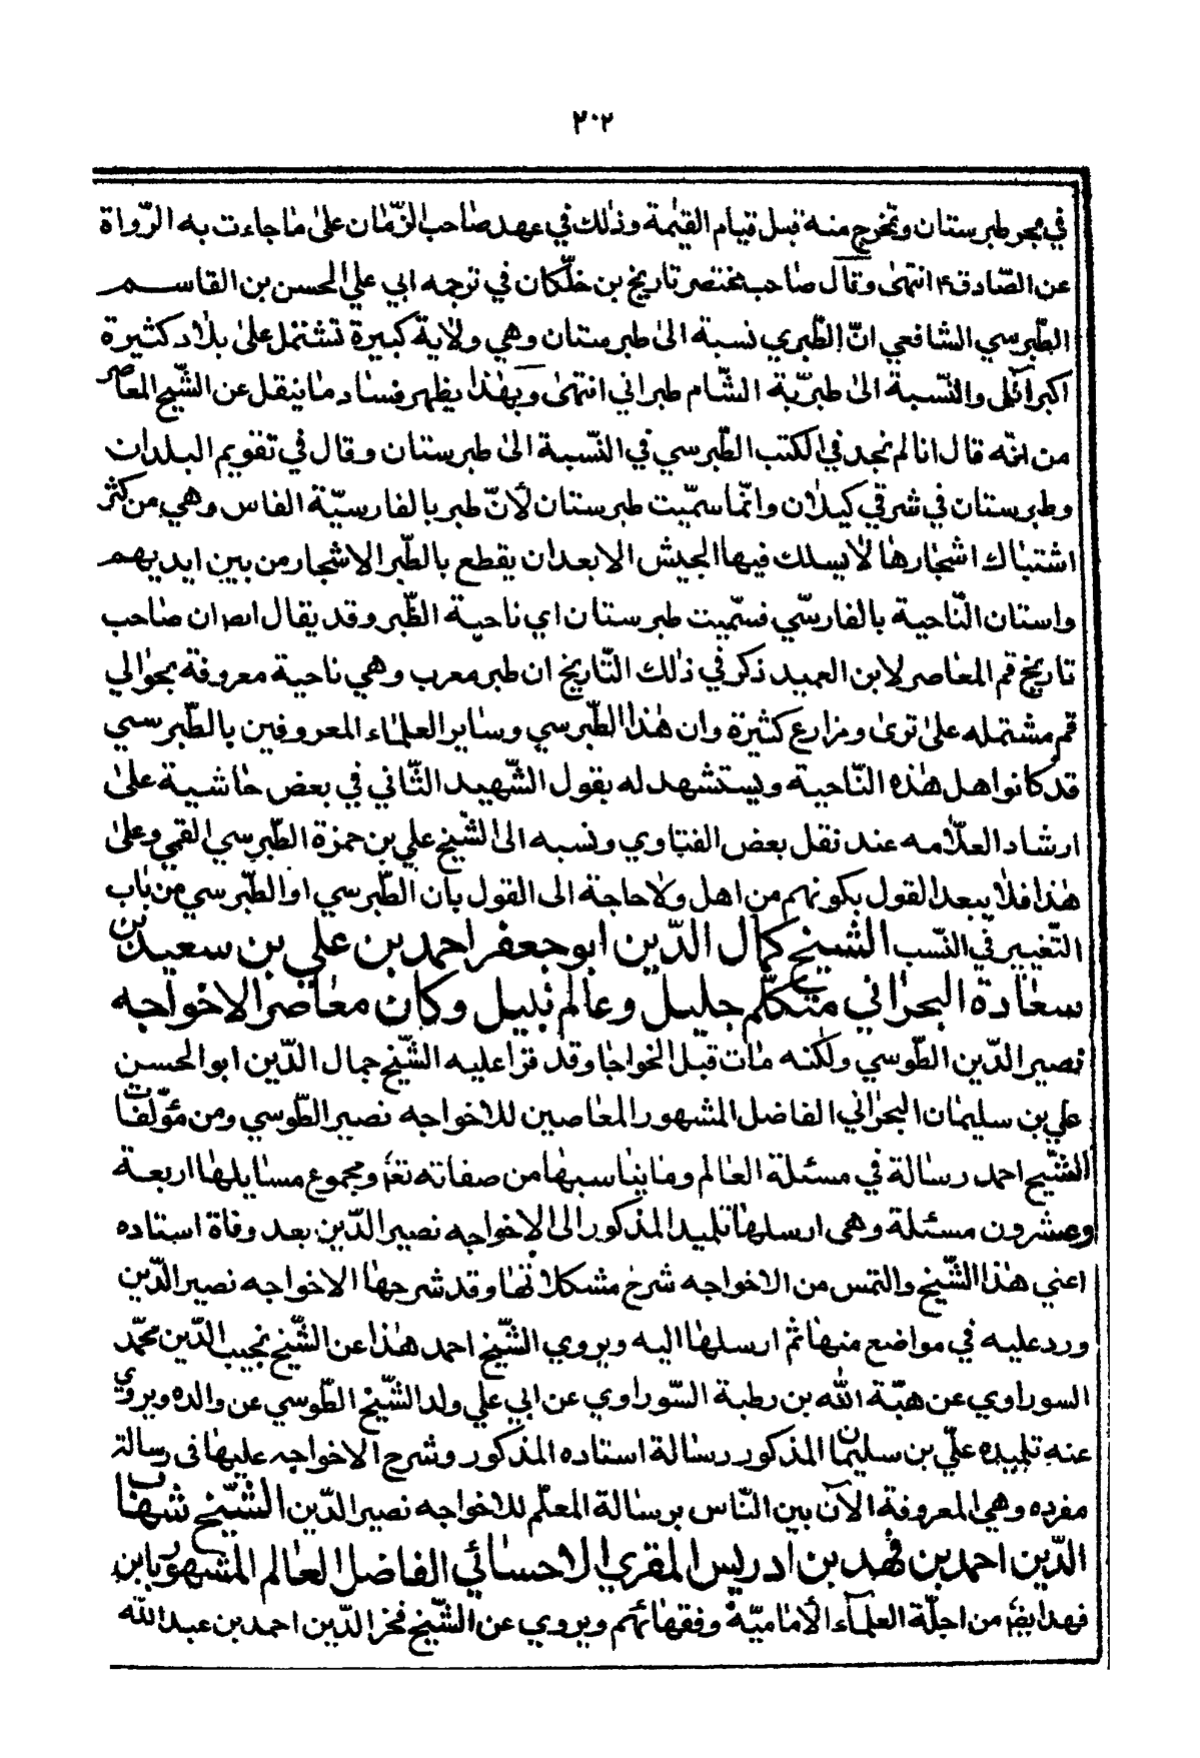 ٢٠٢
في بحر طبرستان وتخرج منه قبل قيام القيٰمة وذٰلك في عهد صاحب الزّمان علىٰ ما جاءت به الرّواة
عن الصّادق ع انتهىٰ وقال صاحب مختصر تاريخ بن خلّكان في ترجمه ابي علي الحسن بن القاسم
الطّبرسي الشافعي انّ الطّبري نسبة الىٰ طبرستان وهي ولاية كبيرة تشتمل علىٰ بلاد كثيرة
اكبر آمل والنّسبة الىٰ طبريّة الشّام طبراني انتهىٰ وبهٰذا يظهر فساد ما ينقل عن الشّيخ المعاصر
من انّه قال انا لم نجد في الكتب الطّبرسي في النّسبة الىٰ طبرستان وقال في تقويم البلدان
وطبرستان في شرقي كيلان وانّما سمّيت طبرستان لأنّ طبر بالفارسيّة الفاس وهي من كثرة
اشتباك اشجارها لا يسلك فيها الجيش الا بعد ان يقطع بالطّبر الاشجار من بين ايديهم
واستان النّاحية بالفارسّي فسمّيت طبرستان اي ناحية الطّبر وقد يقال ايضا ان صاحب
تاريخ قم المعاصر لابن العميد ذكر في ذٰلك التّاريخ ان طبر معرب وهي ناحية معروفة بحوالي
قم مشتمله علىٰ قرىٰ ومزارع كثيرة وان هٰذا الطّبرسي وساير العلماء المعروفين بالطّبرسي
قد كانوا اهل هٰذه النّاحية ويستشهد له بقول الشّهيد الثّاني في بعض حاشية علىٰ
ارشاد العلّامه عند نقل بعض الفتاوي ونسبه الىٰ الشّيخ علي بن حمزة الطّبرسي القمي وعلىٰ
هٰذا فلا يبعد القول بكونهم من اهل ولا حاجة الى القول بان الطّبرسي او الطّبرسي من باب
التّغيير في النّسب الشيخ كمال الدّين ابو جعفر احمد بن علي بن سعيد بن
سعادة البحراني متكلّم جليل وعالم نبيل وكان معاصر الاخواجه
نصير الدّين الطّوسي ولكنه مات قبل الخواجا وقد قرا عليه الشّيخ جمال الدّين ابو الحسن
علي بن سليمان البحراني الفاضل المشهور المعاصين للاخواجه نصير الطّوسي ومن مؤلّفات
الشّيخ احمد رسالة في مسئلة العالم وما يناسبها من صفاته تعٰ ومجموع مسايلها اربعة
وعشرون مسئلة وهي ارسلها تلميذ المذكور الى الاخواجه نصير الدّين بعد وفاة استاده
اعني هٰذا الشّيخ والتمس من الاخواجه شرح مشكلاتها وقد شرحها الاخواجه نصير الدّين
ورد عليه في مواضع منها ثم ارسلها اليه ويروي الشّيخ احمد هٰذا عن الشّيخ نجيب الدّين محمّد
السوراوي عن هبّة الله بن رطبة السّوراوي عن ابي علي ولد الشّيخ الطّوسي عن والده ويروي
عنه تلميذه علّي بن سليمان المذكور رسالة استاده المذكور وشرح الاخواجه عليها في رسالة
مفرده وهي المعروفة الآن بين النّاس برسالة المعلّم للاخواجه نصير الدّين الشّيخ شهاب
الدّين احمد بن فهد بن ادريس المقري الاحسائي الفاضل العالم المشهور بابن
فهد ايضا من اجلّة العلماء الأماميّة وفقهائهم ويروي عن الشّيخ فخر الدّين احمد بن عبد الله